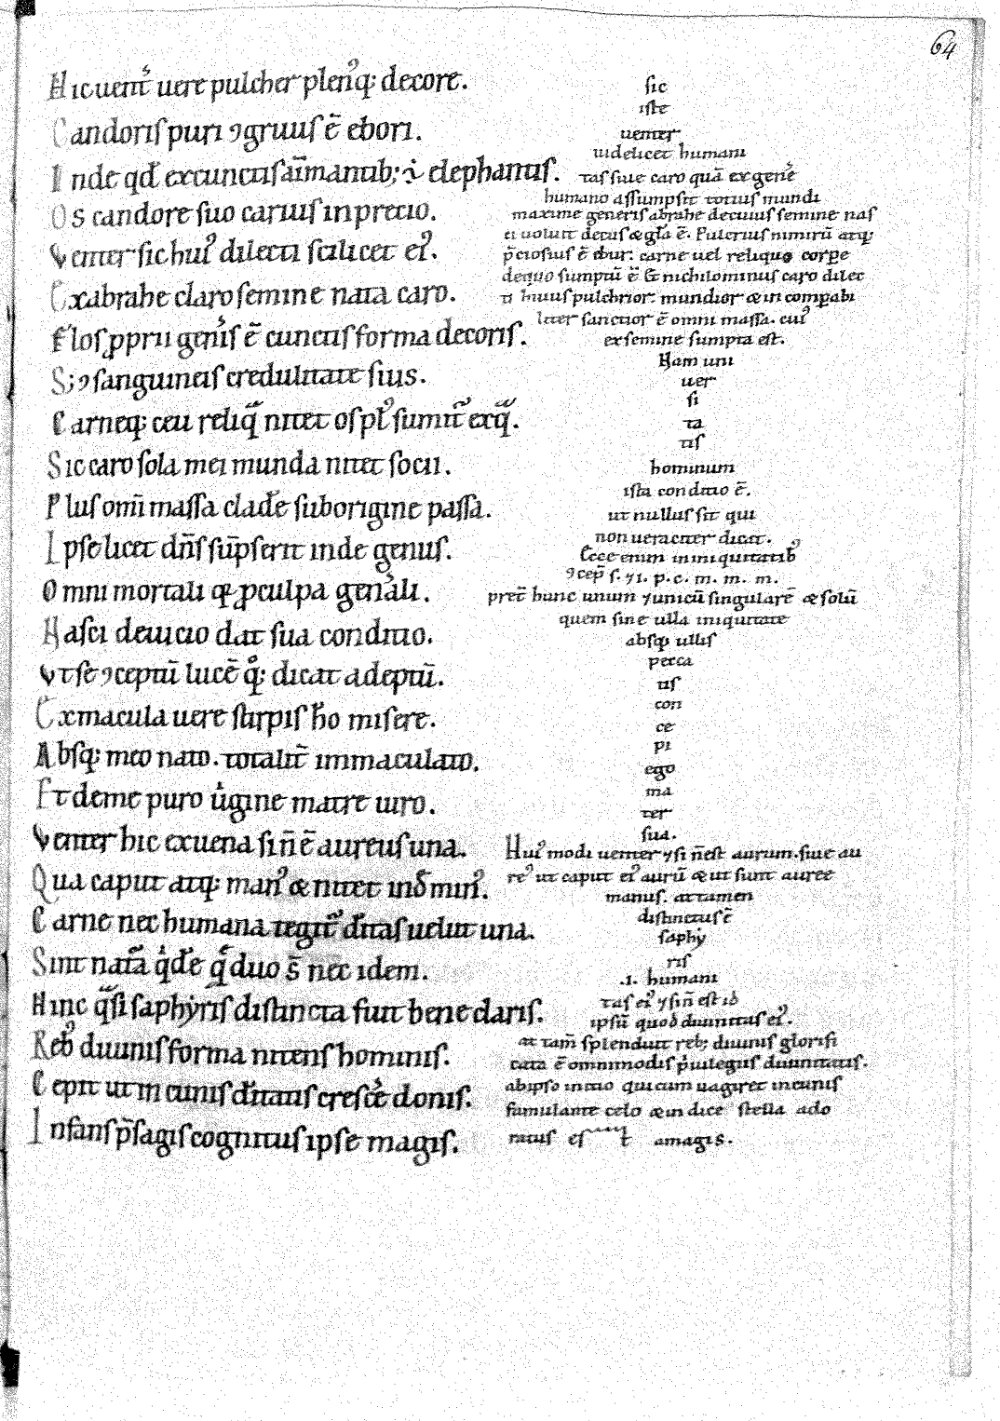 64
Hic uent᷒ uere pulcher plen᷒q; decore.
Candoris puri ꝯgruus ē ebori.
Inde qđ excunctis aīmantib; ÷ elephantus.
Os candore suo carius in precio.
Venter sic hui᷒ dilecti scilicet ei᷒.
Ex abrahe claro semine nata caro.
Flos ꝓprii gen̓is ē cunctis forma decoris.
S; ꝯsanguineis credulitate suis.
Carneq; ceu reliq̄ nitet os
Sic caro sola mei munda nitet socii.
Plus om̄i massa clade sub origine passa.
Ipse licet dn̄s sūpserit inde genus.
Omni mortali q ꝓculpa gen̓ali.
Nasci deuicio dat sua conditio.
Vt se ꝯceptū lucē q; dicat adeptū.
Ex macula uere stirpis ħo misere.
Absq; meo nato. totalit̄ immaculato.
Et deme puro ůgine matre uiro.
Venter hic ex uena sin̄ ē aureus una.
Qua caput atq; man᷒ & nitet
Carne nec humana tegit᷒ dītas uelut una.
Sint natā q̓ de q duo s̄ nec idem.
Hinc q̄si saphyris distincta fuit bene claris.
Reb᷒ diuinis forma nitens hominis.
Cepit ut in cunis dītatis cresce donis.
Infans p̄sagis cognitus ipse magis.
sic
iste
uenter
uidelicet humani
tas siue caro quā ex gen̓e
humano assumpsit totius mundi
maxime generis abrahe decuius semine nas
ci uoluit decus & gła ē. Pulcrius nimirū atq;
p̄ciosius ē ebur. carne uel reliquo corpe
dequo sumptū ē. Et nichilominus caro dilec
ti huius pulchrior. mundior & incompabi
liter sanctior ē omni massa. cui᷒
ex semine sumpta est.
Nam uni
uer
si
ta
tis
hominum
ista conditio ē.
ut nullus sit qui
non ueraciter dicat.
Ecce enim in iniquitatib᷒
ꝯcep̄ s. ⁊ i. p. c. m. m. m.
pret̄ hunc unum ⁊ unicū singularē & solū
quem sine ulla iniquitate
absq; ullis
pecca
tis
con
ce
pi
ego
ma
ter
sua.
Hui᷒ modi uenter ⁊ si n̄ est aurum. siue au
re᷒ ut caput ei᷒ aurū & ut sunt auree
manus. attamen
distinctus ē
saphy
ris
.i. humani
tas ei᷒ ⁊ si n̄ est id
ipsū quod diuinitas ei᷒.
at tam̄ splenduit reb; diuinis glorifi
cata ē omnimodis p̓uilegiis diuinitatis.
abipso initio qui cum uagiret in cunis
famulante celo & indice stella ado
ratus es t̄ amagis.